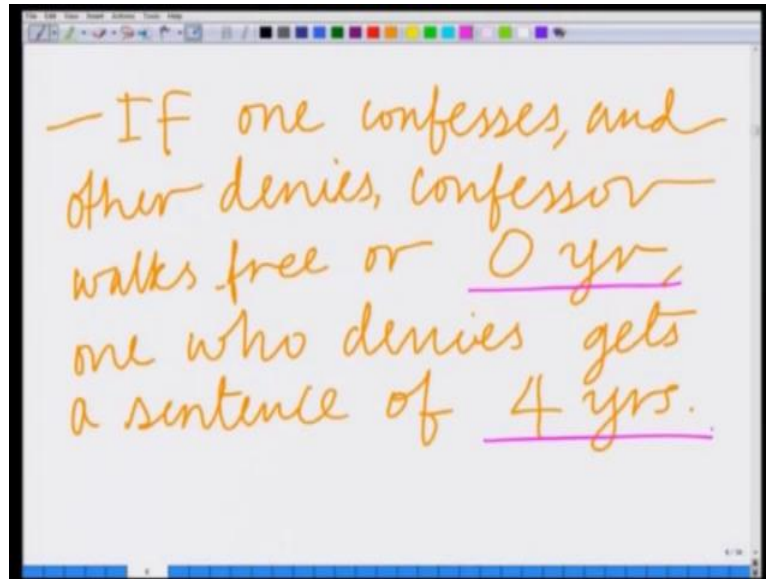 File Edit View Insert Actions Tools Help
— If one confesses, and
other denies, confessor
walks free or 0 yr,
one who denies gets
a sentence of 4 yrs.